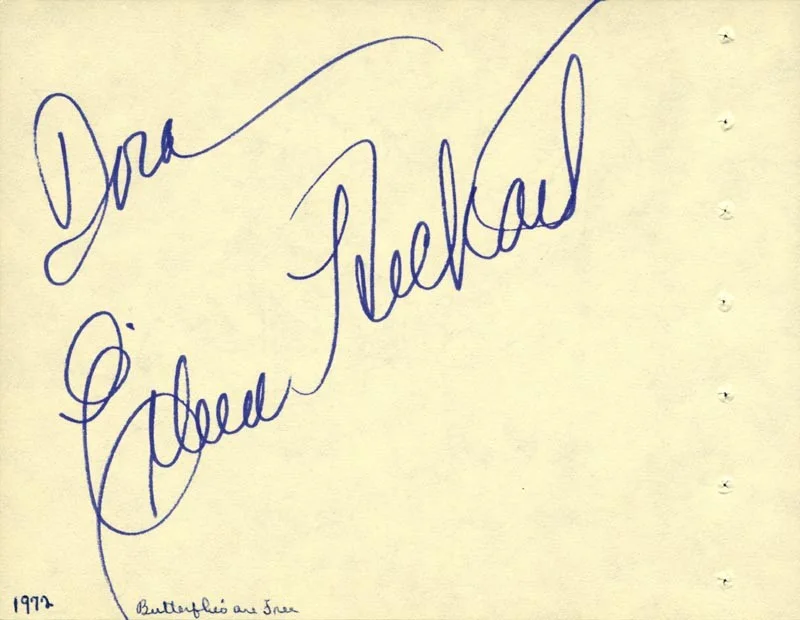 Dora
Eileen Heckart
1972 Butterflies are Free